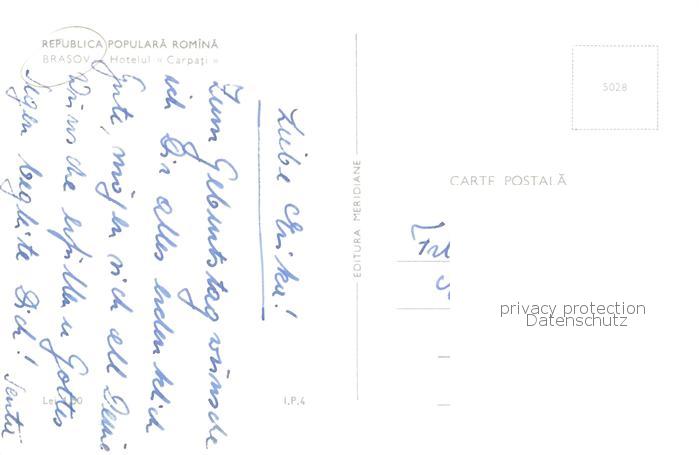 REPUBLICA POPULARĂ ROMÎNĂ
BRAȘOV - Hotelul « Carpați »
Liebe Erika!
Zum Geburtstag wünsche
ich Dir alles erdenklich
Gute, mögen sich all Deine
Wünsche erfüllen u Gottes
Segen begleite Dich!
Lei 1,50
I.P.4
EDITURA MERIDIANE
5028
CARTE POSTALĂ
privacy protection
Datenschutz